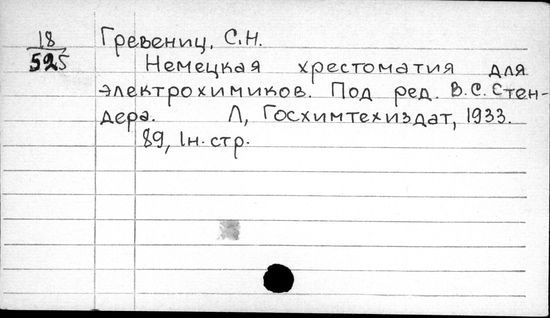 18
525
Гревениц, С.Н.
Немецкая хрестоматия для
электрохимиков. Под ред. В.С. Стен-
дера. Л, Госхимтехиздат, 1933.
89, 1н. стр.